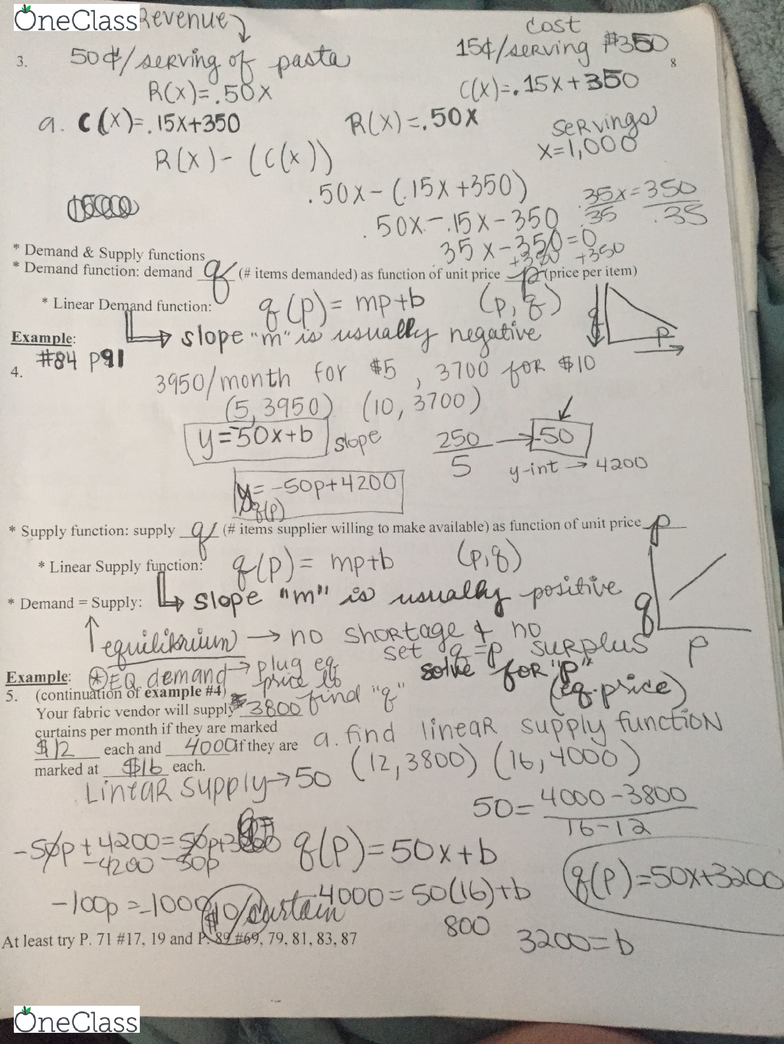 OneClass
Revenue
Cost
3. 50¢/serving of pasta 15¢/serving #350 8
R(x)=.50x C(x)=.15x+350
a. C(x)=.15x+350 R(x)=.50x servings
x=1,000
R(x)-(C(x))
.50x-(.15x+350) 35x=350
.35 .35
.50x-.15x-350
35x-350=0
+350 +350
* Demand & Supply functions
* Demand function: demand q (# items demanded) as function of unit price p (price per item)
* Linear Demand function: q(p)=mp+b (p,q) q p
slope "m" is usually negative
Example:
#84 P91
4. 3950/month for $5, 3700 for $10
(5,3950) (10,3700)
y=-50x+b slope 250 -50
5 y-int → 4200
y=-50p+4200
q(p)
* Supply function: supply q (# items supplier willing to make available) as function of unit price p
* Linear Supply function: q(p)=mp+b (p,q)
* Demand = Supply: slope "m" is usually positive q p
equilibrium → no shortage & no surplus
set q=p
solve for "p"
(eq.price)
Example: * EQ demand → plug eq. price
find "q"
5. (continuation of example #4)
Your fabric vendor will supply 3800
curtains per month if they are marked
$12 each and 4000 if they are
marked at $16 each.
a. find linear supply function
(12,3800) (16,4000)
Linear supply → 50
50=4000-3800
16-12
-50p+4200=50p+3200 q(p)=50x+b
-4200 -50p
q(p)=50x+3200
-100p=-1000 4000=50(16)+b
$10/curtain 800 3200=b
At least try P. 71 #17, 19 and P. 89 #69, 79, 81, 83, 87
OneClass